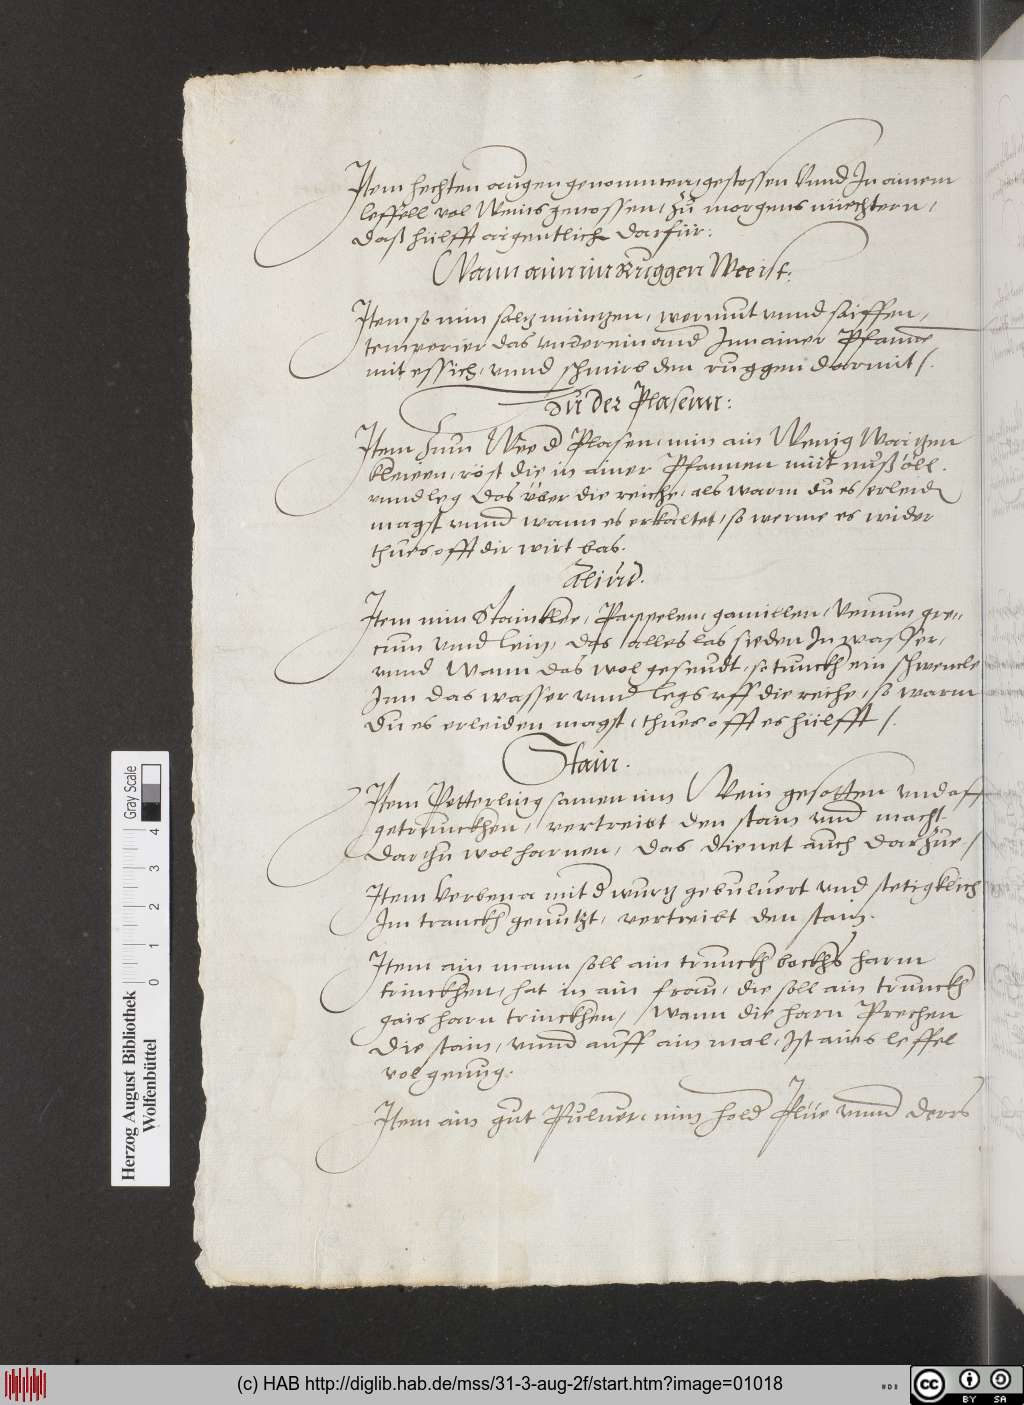 Item hechten augen genommen, gestossen vnnd In ainem
leffell vol Weins genossen, zü morgens nüechtern,
daß hülfft aigentlich darfür:
Wann aim im Ruggen Wee ist:
Item so nim saltz müntzen, wermut vnnd saiffen,
temperier das vndereinand Inn ainer Pfanne
mit essich, vnnd schmirb den ruggen darmit /.
Zu der Plasenn:
Item zum Wee d Plasen, nim ain Wenig Waitzen
kleiwen, röst die in ainer Pfannen mit nuß öll.
vnnd leg das über die reiche, als warm du es erleiden
magst vnnd wann es erkaltet, so werme es wider
thues offt dir wirt bas.
Aliud.
Item nim Stainklee, Pappelen, gamillen, Venum gre=
cum vnnd lein, das alles las sieden In wasser,
vnnd Wann das wol geseudt, so tunckh ein schwencle
Inn das wasser vnnd legs vff die reiche, so warm
du es erleiden magst, thues offt es hülfft /.
Stain.
Item Petterling samen inn Wein gesotten vnd offt
getrunckhen, vertreibt den stain vnd macht
darzu wol harnen, das dienet auch darzue /
Item Verbena mit d wurtz gebuluert vnd stetigklich
Im tranckh genutzt, vertreibt den stain.
Item ain mann soll ain trunckh bockhs harm
trinckhen, hat in ain fraw, die soll ain trunckh
gais harn trinckhen, Wann die harn Prechen
die stain, vnnd auff ain mal, Ist ains leffel
vol genug.
Item ain gut Puluer, nim hold Plüe vnnd derrs
Herzog August Bibliothek
Wolfenbüttel
0 1 2 3 4
Gray Scale
(c) HAB http://diglib.hab.de/mss/31-3-aug-2f/start.htm?image=01018
cc BY SA